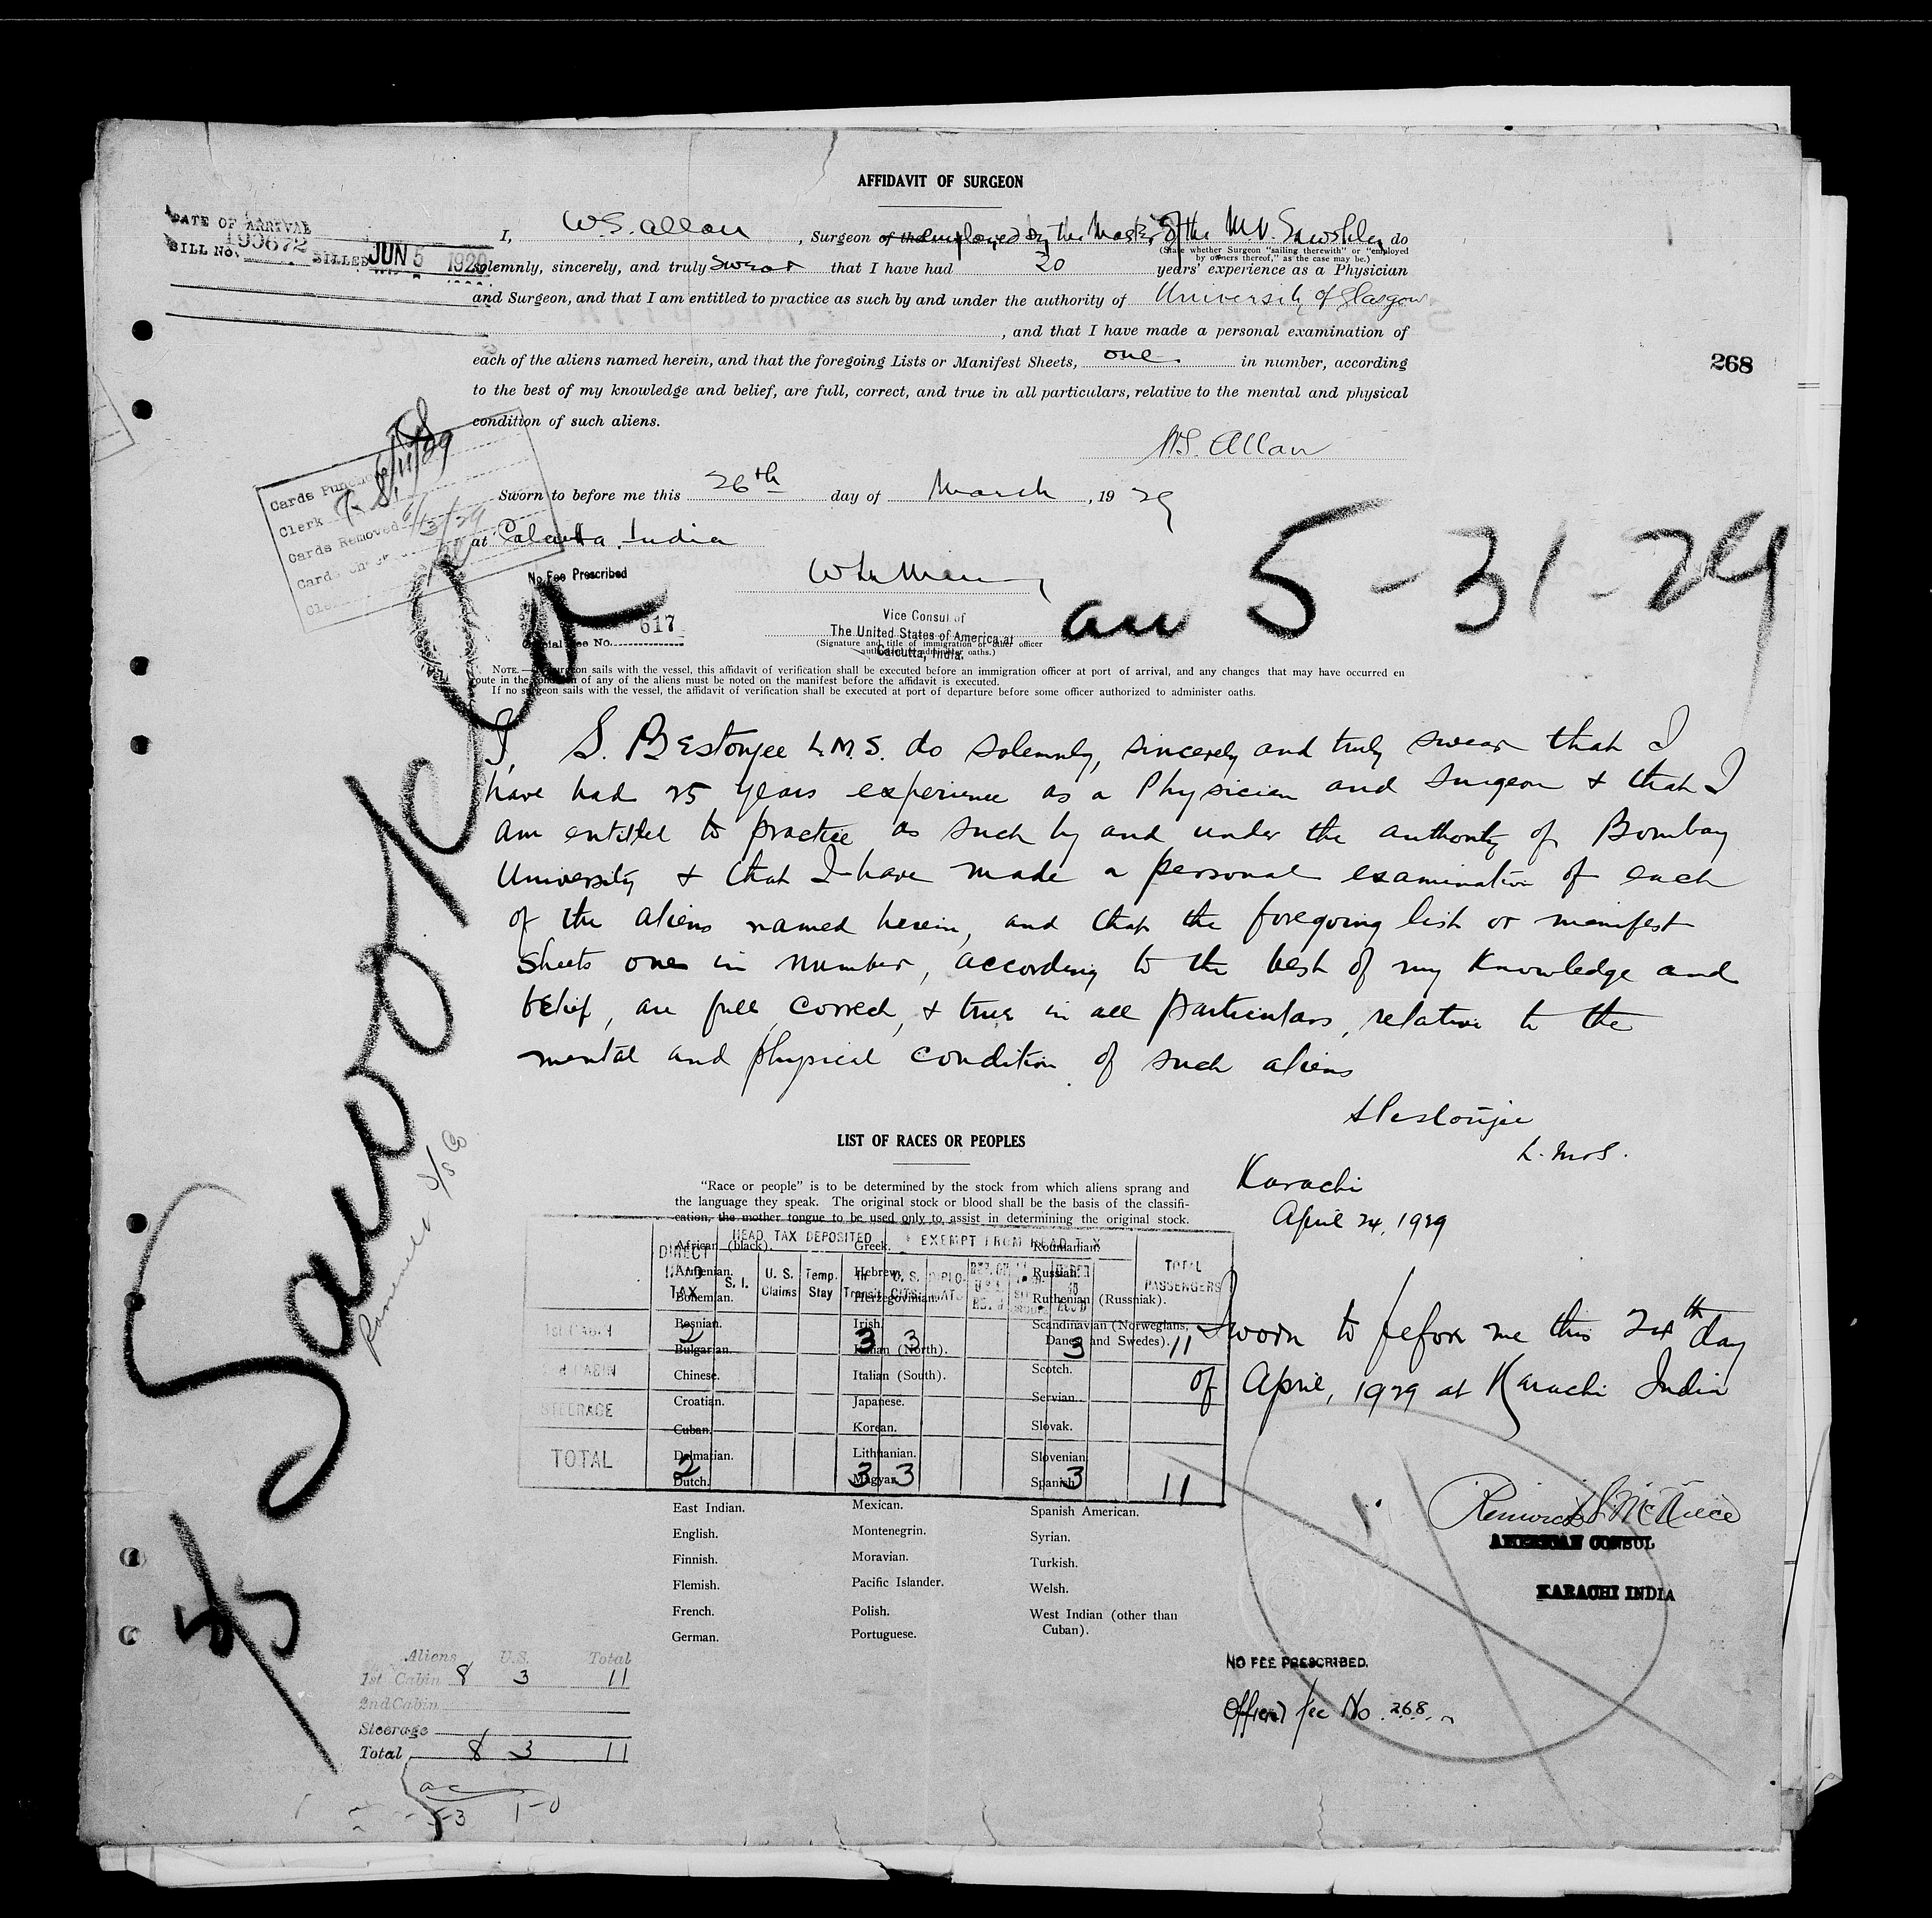 AFFIDAVIT OF SURGEON
DATE OF ARRIVAL
BILL No. 190672 BILLED JUN 5 1929
I, W.S. Allan, Surgeon of the employed by the Master of the M.V. do
(State whether Surgeon "sailing therewith" or "employed
by owners thereof," as the case may be.)
solemnly, sincerely, and truly swear that I have had 20 years' experience as a Physician
and Surgeon, and that I am entitled to practice as such by and under the authority of University of Glasgow
, and that I have made a personal examination of
each of the aliens named herein, and that the foregoing Lists or Manifest Sheets, one in number, according
268
to the best of my knowledge and belief, are full, correct, and true in all particulars, relative to the mental and physical
condition of such aliens.
W.S. Allan
Cards Punched 6/11/29
Clerk
Cards Removed 6/13/29
Sworn to before me this 26th day of March, 1929
at Calcutta, India
No Fee Prescribed
617
Fee No.
Vice Consul of
The United States of America at
Calcutta, India.
(Signature and title of immigration or other officer
authorized to administer oaths.)
5-31-29
NOTE.—If surgeon sails with the vessel, this affidavit of verification shall be executed before an immigration officer at port of arrival, and any changes that may have occurred en
route in the condition of any of the aliens must be noted on the manifest before the affidavit is executed.
If no surgeon sails with the vessel, the affidavit of verification shall be executed at port of departure before some officer authorized to administer oaths.
I, S. Pestonjee L.M.S. do solemnly, sincerely and truly swear that I
have had 25 years experience as a Physician and Surgeon & that I
am entitled to practice as such by and under the authority of Bombay
University & that I have made a personal examination of each
of the aliens named herein, and that the foregoing list or manifest
sheets one in number, according to the best of my knowledge and
belief, are full, correct, & true in all particulars, relative to the
mental and physical condition of such aliens
S Pestonjee
L.M.S.
Karachi
April 24, 1929
Sworn to before me this 24th day
of April, 1929 at Karachi India
AMERICAN CONSUL
KARACHI INDIA
NO FEE PRESCRIBED.
Official fee No 268
LIST OF RACES OR PEOPLES
"Race or people" is to be determined by the stock from which aliens sprang and
the language they speak. The original stock or blood shall be the basis of the classifi-
cation, the mother tongue to be used only to assist in determining the original stock.
African (black).
Armenian.
Bohemian.
Bosnian.
Bulgarian.
Chinese.
Croatian.
Cuban.
Dalmatian.
Dutch.
East Indian.
English.
Finnish.
Flemish.
French.
German.
Greek.
Hebrew.
Herzegovinian.
Irish.
Italian (North).
Italian (South).
Japanese.
Korean.
Lithuanian.
Magyar.
Mexican.
Montenegrin.
Moravian.
Pacific Islander.
Polish.
Portuguese.
Roumanian.
Russian.
Ruthenian (Russniak).
Scandinavian (Norwegians,
Danes and Swedes).
Scotch.
Servian.
Slovak.
Slovenian.
Spanish.
Spanish American.
Syrian.
Turkish.
Welsh.
West Indian (other than
Cuban).
HEAD TAX DEPOSITED EXEMPT FROM HEAD TAX
DIRECT HEAD TAX S. I. U. S. Claims Temp. Stay In Transit U. S. CITS. DIPLOMATS TOTAL PASSENGERS
1st CABIN 2 3 3 3 11
2nd CABIN
STEERAGE
TOTAL 2 3 3 3 11
Aliens U.S. Total
1st Cabin 8 3 11
2nd Cabin
Steerage
Total 8 3 11